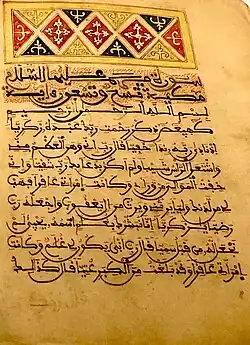 سورة مريم عليها السلام
مكية تسع وتسعون ءاية
بسم الله الرحمن الرحيم
كهيعص ذكر رحمت ربك عبده زكريا
إذ نادى ربه نداء خفيا قال رب إني وهن العظم مني
واشتعل الرأس شيبا ولم أكن بدعائك رب شقيا وإني
خفت الموالي من وراءي وكانت امرأتي عاقرا فهب
لي من لدنك وليا يرثني ويرث من ءال يعقوب واجعله رب
رضيا يزكريا إنا نبشرك بغلم اسمه يحيى لم
نجعل له من قبل سميا قال رب أنى يكون لي غلم وكانت
امرأتي عاقرا وقد بلغت من الكبر عتيا قال كذلك